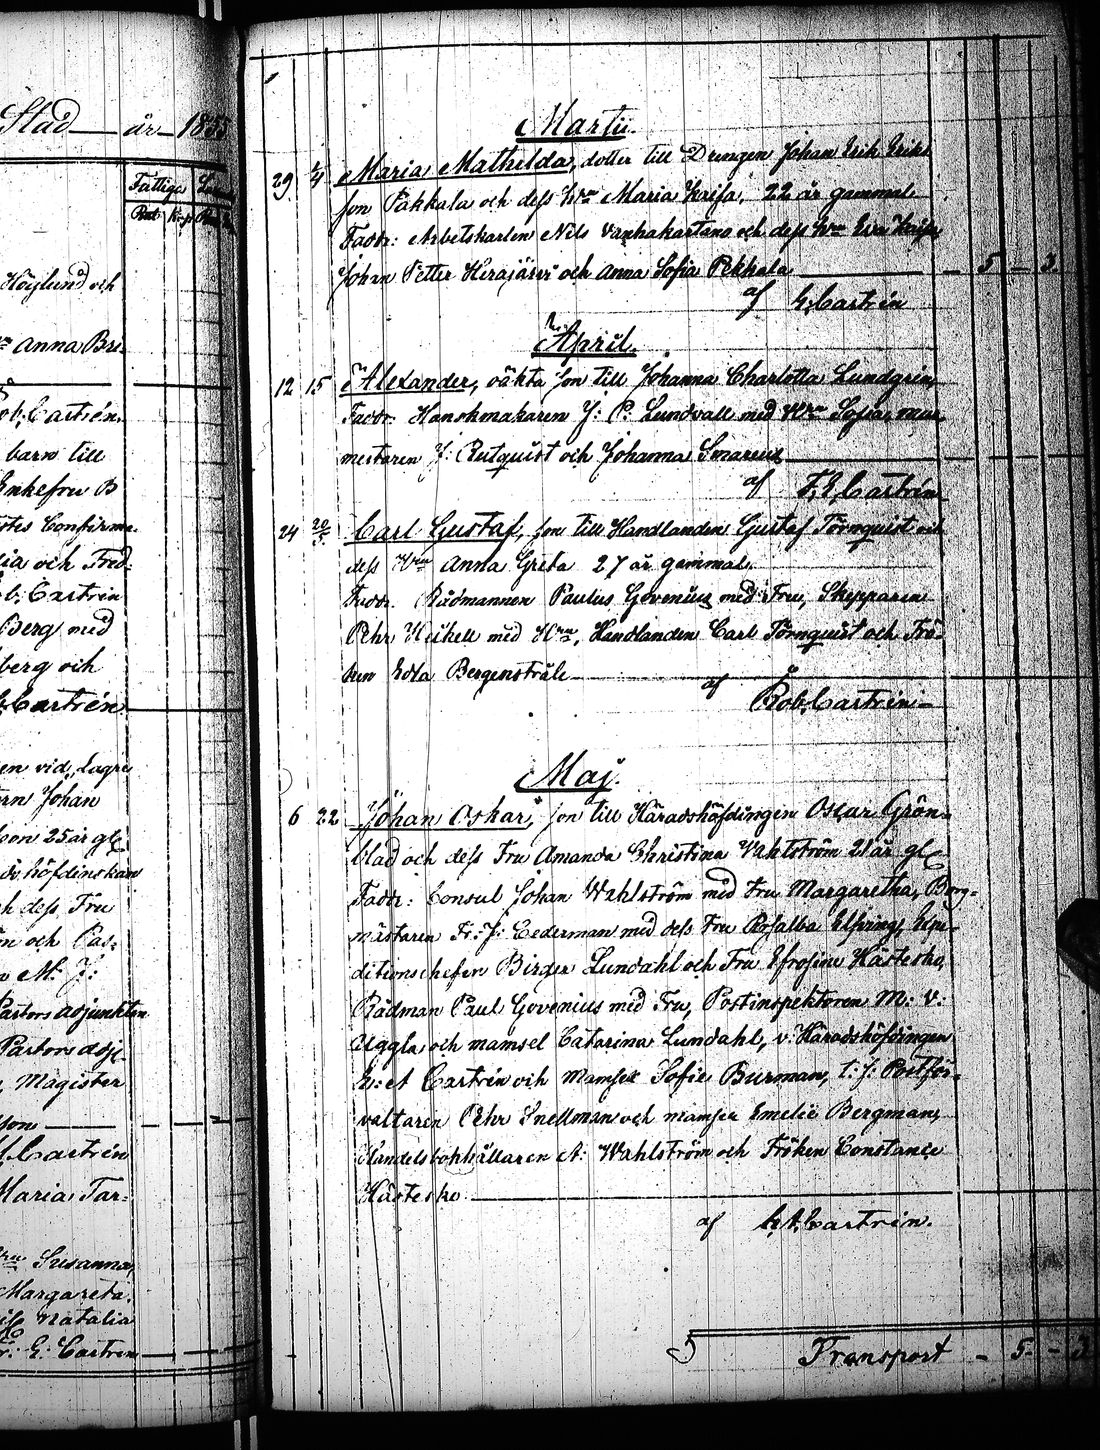 Stad — år 1855
Fattiga
Höglund och
Anna Bre-
Castrén.
barn till
Enkefru B
Confirma-
lia och Fred-
b. Castrén
Berg med
berg och
Castrén
en vid Lagre
Johan
son 25 år gl
höfdinskan
h dess Fru
n och Pas-
M. J:
Pastors adjunkten
Pastors adj.
Magister
son
Castrén
Maria Tar-
Susanna,
Margareta,
Natalia
F: E: Castren
Martii.
29 4/4 Maria Mathilda, dotter till Drengen Johan Erik Eriks
son Pakkala och dess Hru Maria Kaisa, 22 år gammal.
Faddr: Arbetskarlen Nils Vanhakartano och dess Hru Eva Kaisa
Johan Petter Herajärvi och Anna Sofia Pekkala — 5 — 3.
af G. Castrén
April.
12 15 Alexander, oäkta son till Johanna Charlotta Lundgrén,
Faddr: Hanskmakaren J: P: Lundvall med Hru Sofia, mur-
mestaren J: Rutquist och Johanna Snareus
af F. E. Castrén
24 20/5 Carl Gustaf, son till Handlanden Gustaf Törnquist och
dess Hru Anna Greta 27 år gammal.
Faddr. Rådmannen Paulus Govenius med Fru, Skepparen
Pehr Heikell med Hru, Handlanden Carl Törnquist och Frö-
ken Edla Bergenstråle
af Rob. Castrén
Maj.
6 22 Johan Oskar, son till Häradshöfdingen Oscar Grön-
blad och dess Fru Amanda Christina Wahlström 21 år gl
Faddr: Consul Johan Wahlström med Fru Margaretha, Borg-
mästaren Fr: J: Cederman med dess Fru Rosalba Elfving, Expe-
ditionschefen Birger Lundahl och Fru Efrosine Hästesko,
Rådman Paul Govenius med Fru, Postinspektoren M: v:
Uggla och mamsel Catarina Lundahl, v. Häradshöfdingen
Castrén och Mamsel Sofie Burman, t: f: Postför-
valtaren Pehr Snellman och mamsel Emelie Bergman,
Handelsbokhållaren A: Wahlström och Fröken Constance
Hästesko
af Castrén.
Transport — 5 — 3